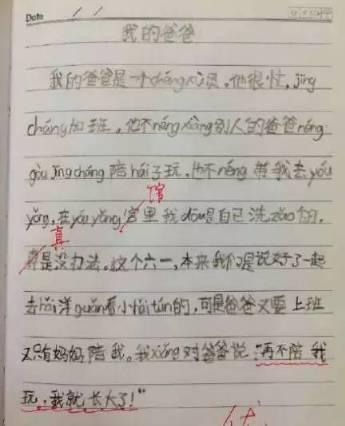 Date / /
我的爸爸
我的爸爸是一个chéng xù员,他很忙,jīng
cháng加班,他不néng xiàng别人的爸爸néng
gòu jīng cháng 陪hái子玩,他不néng 带我去yóu
yǒng,在yóu yǒng 馆里我dōu是自己洗zǎo的,
真是没办法。这个六一,本来我们是说好了一起
去hǎi洋guǎn看小hǎi tún的,可是爸爸又要上班
又只有妈妈陪我。我xiǎng对爸爸说:“再不陪我
玩,我就长大了!”
优